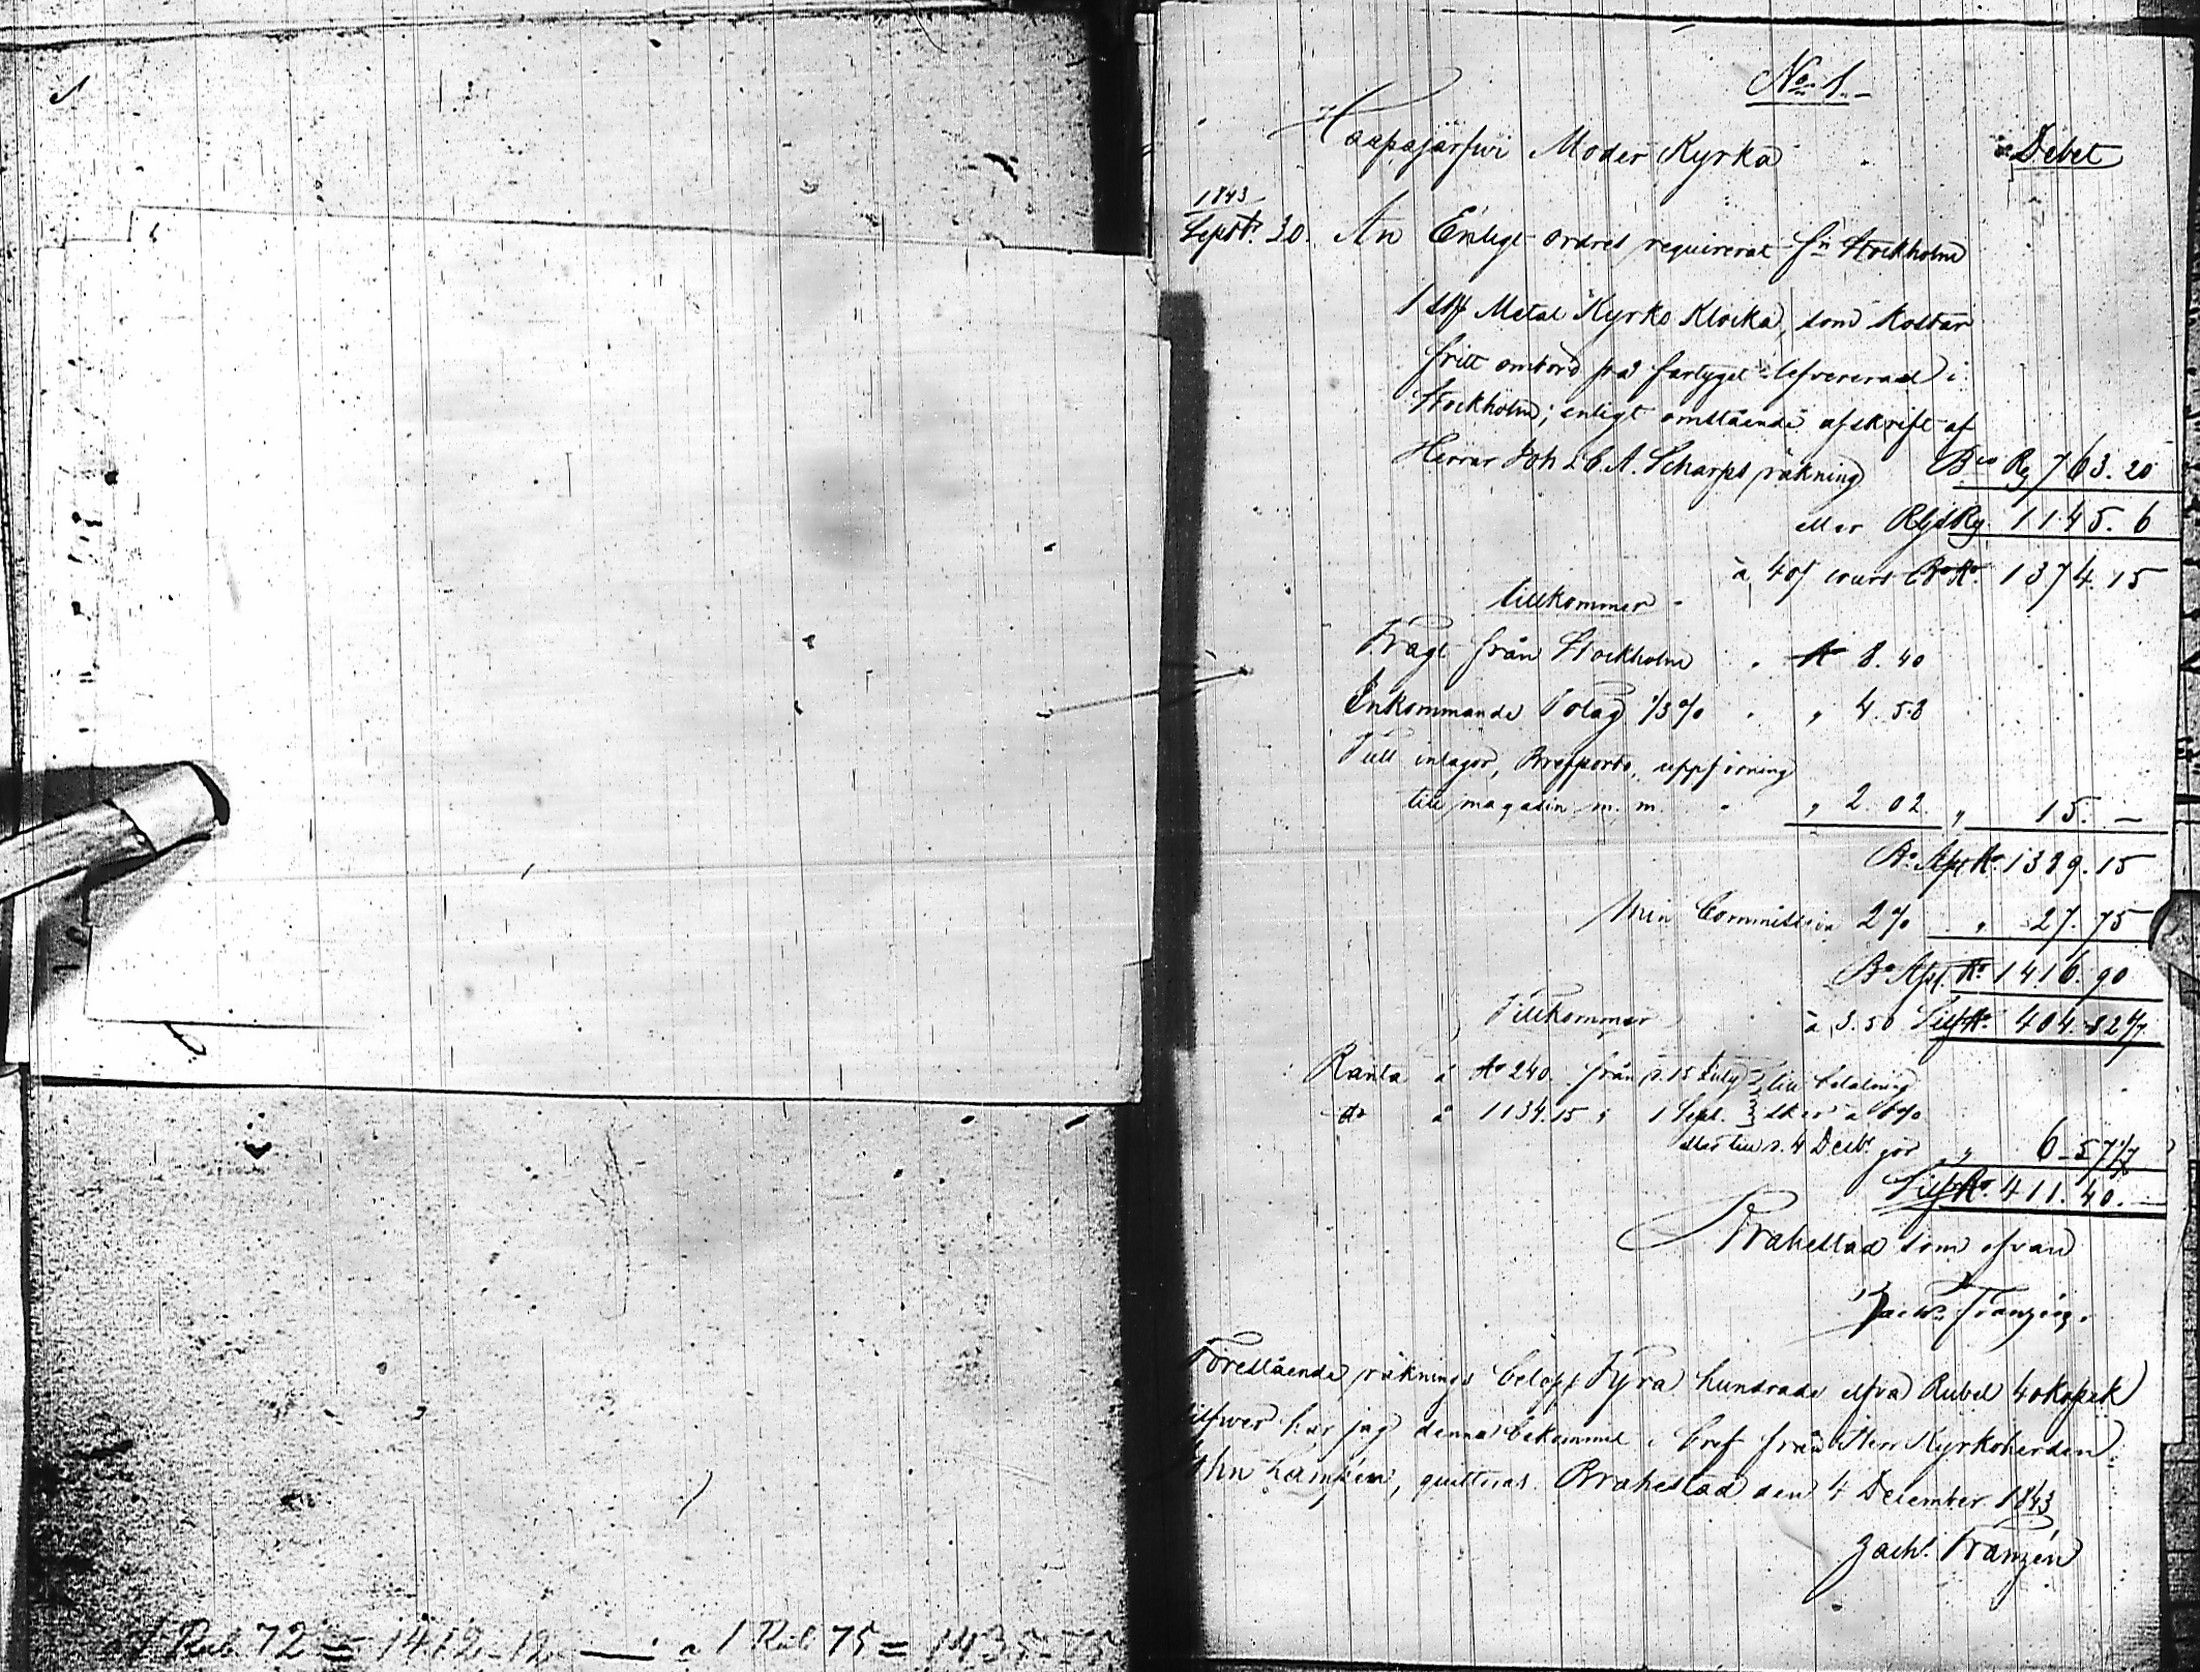 No 1.
Haapajärfwi Moder Kyrka Debet
1843
Septbr. 30. An Enligt ordres requirerat frn Stockholm
1 st Metal Kyrko Klocka, som kostar
fritt ombord på fartyget lefvererad i
Stockholm; enligt omstående afskrift af
Herrar Joh & C. A. Scharps räkning Bco Rg 763. 20
eller RgsRg. 1145. 6
à 40 f cours Bo Ro. 1374. 15
tillkommer
Fragt från Stockholm " Ro 8. 40
Inkommande Tolag 1/3 % " 4. 58
Tull inlagor, Brefporto, uppföring
till magasin m. m. " 2. 02. " 15. —
Bo Ro. 1389. 15
Min Commission 2 % " 27. 75
Bo Ro. 1416. 90
Tillkommer à 3. 50 Silf Ro. 404. 82 6/7
Ränta à Ro 240. från d. 15 July } till betalning
do à 1134. 15 " 1 Sept. } sker à 6 %
eller till d. 4 Decbr. gör " 6 - 57 1/7
Silf Ro. 411. 40. —
Brahestad som ofvan
Zachs. Franzén.
Förestående räknings belopp Fyra hundrade elfva Rubel 40 Kopek
silfwer har jag denna bekommit i bref från Herr Kyrkoherden
John Lampén, quitteras. Brahestad den 4 December 1843
Zachs. Franzén
à 1 Rub. 72 = 1412-12 — à 1 Rub 75 = 1435-75